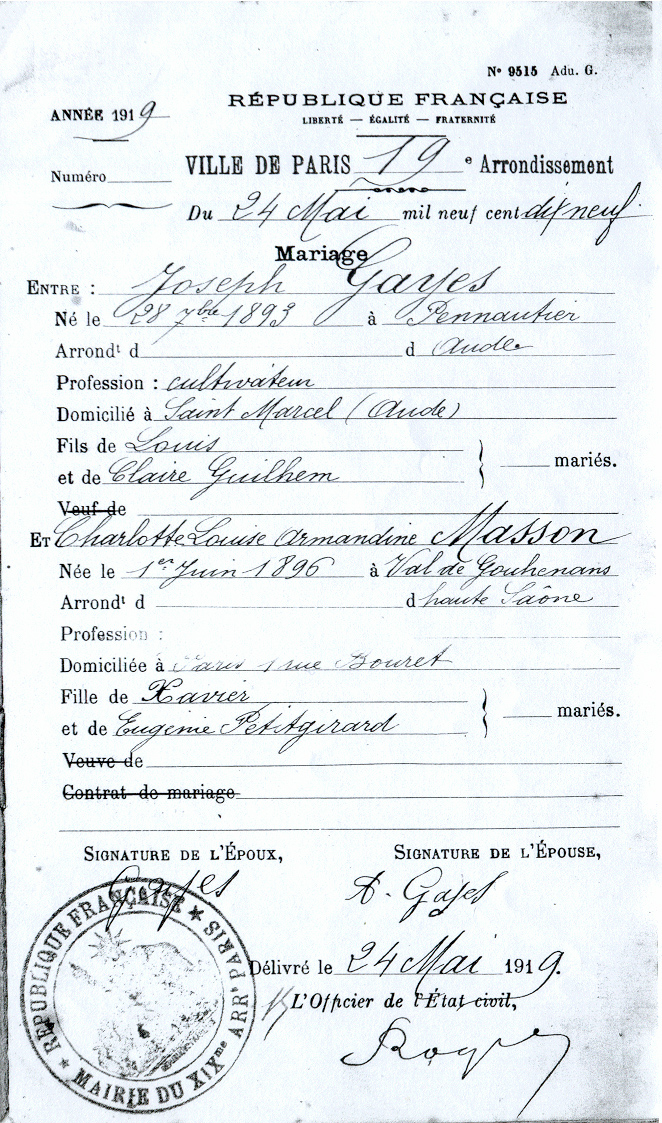 Nº 9515 Adu. G.
RÉPUBLIQUE FRANÇAISE
LIBERTÉ — ÉGALITÉ — FRATERNITÉ
ANNÉE 1919
VILLE DE PARIS 19e Arrondissement
Numéro
Du 24 Mai mil neuf cent dix neuf
Mariage
ENTRE : Joseph Gayes
Né le 28 7bre 1893 à Pennautier
Arrondt d d Aude
Profession : cultivateur
Domicilié à Saint Marcel (Aude)
Fils de Louis
et de Claire Guilhem mariés.
Veuf de
ET Charlotte Louise Armandine Masson
Née le 1er Juin 1896 à Val de Gouhenans
Arrondt d d haute Saône
Profession :
Domiciliée à Paris 1 rue Bouret
Fille de Xavier
et de Eugenie Petitgirard mariés.
Veuve de
Contrat de mariage
SIGNATURE DE L'ÉPOUX, SIGNATURE DE L'ÉPOUSE,
Gayes A. Gayes
Délivré le 24 Mai 1919.
L'Officier de l'État civil,
RÉPUBLIQUE FRANÇAISE ★ MAIRIE DU XIXme ARRt PARIS ★